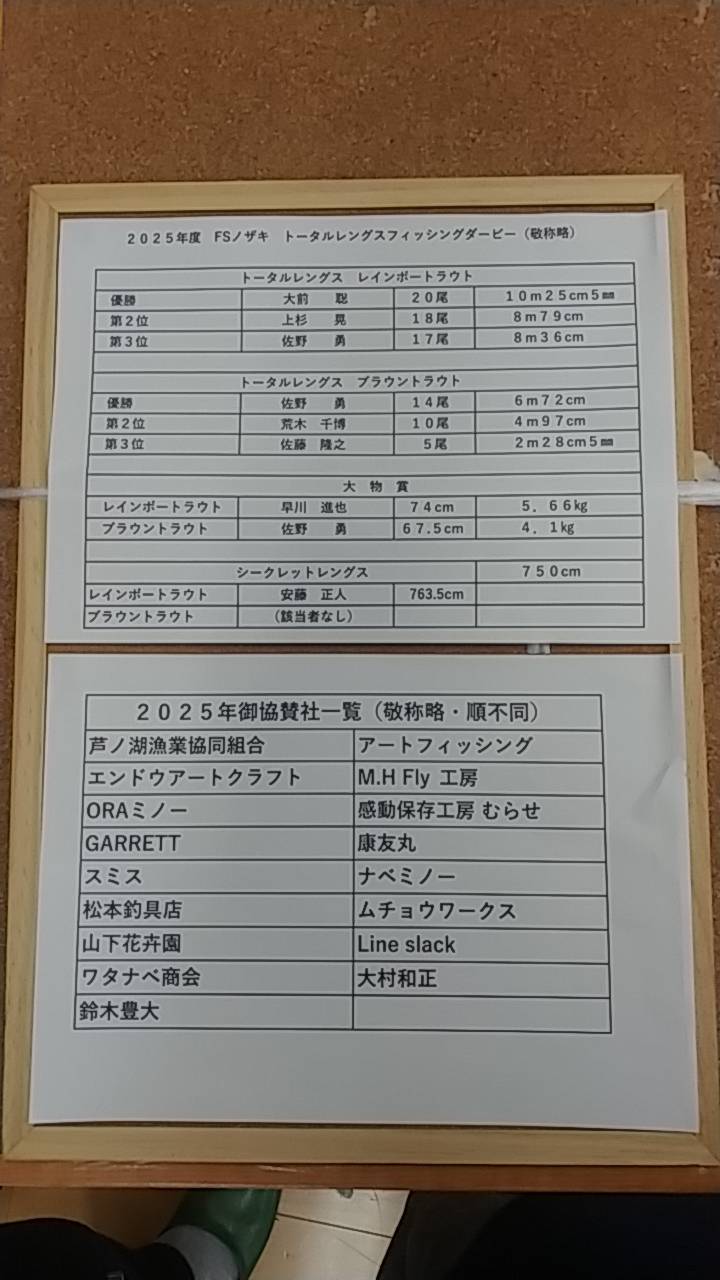 2025年度 FSノザキ トータルレングスフィッシングダービー（敬称略）
トータルレングス レインボートラウト
優勝 大前 聡 20尾 10m25cm5㎜
第2位 上杉 晃 18尾 8m79cm
第3位 佐野 勇 17尾 8m36cm
トータルレングス ブラウントラウト
優勝 佐野 勇 14尾 6m72cm
第2位 荒木 千博 10尾 4m97cm
第3位 佐藤 隆之 5尾 2m28cm5㎜
大 物 賞
レインボートラウト 早川 進也 74cm 5．66kg
ブラウントラウト 佐野 勇 67.5cm 4．1kg
シークレットレングス 750cm
レインボートラウト 安藤 正人 763.5cm
ブラウントラウト （該当者なし）
2025年御協賛社一覧（敬称略・順不同）
芦ノ湖漁業協同組合 アートフィッシング
エンドウアートクラフト M.H Fly 工房
ORAミノー 感動保存工房 むらせ
GARRETT 康友丸
スミス ナベミノー
松本釣具店 ムチョウワークス
山下花卉園 Line slack
ワタナベ商会 大村和正
鈴木豊大